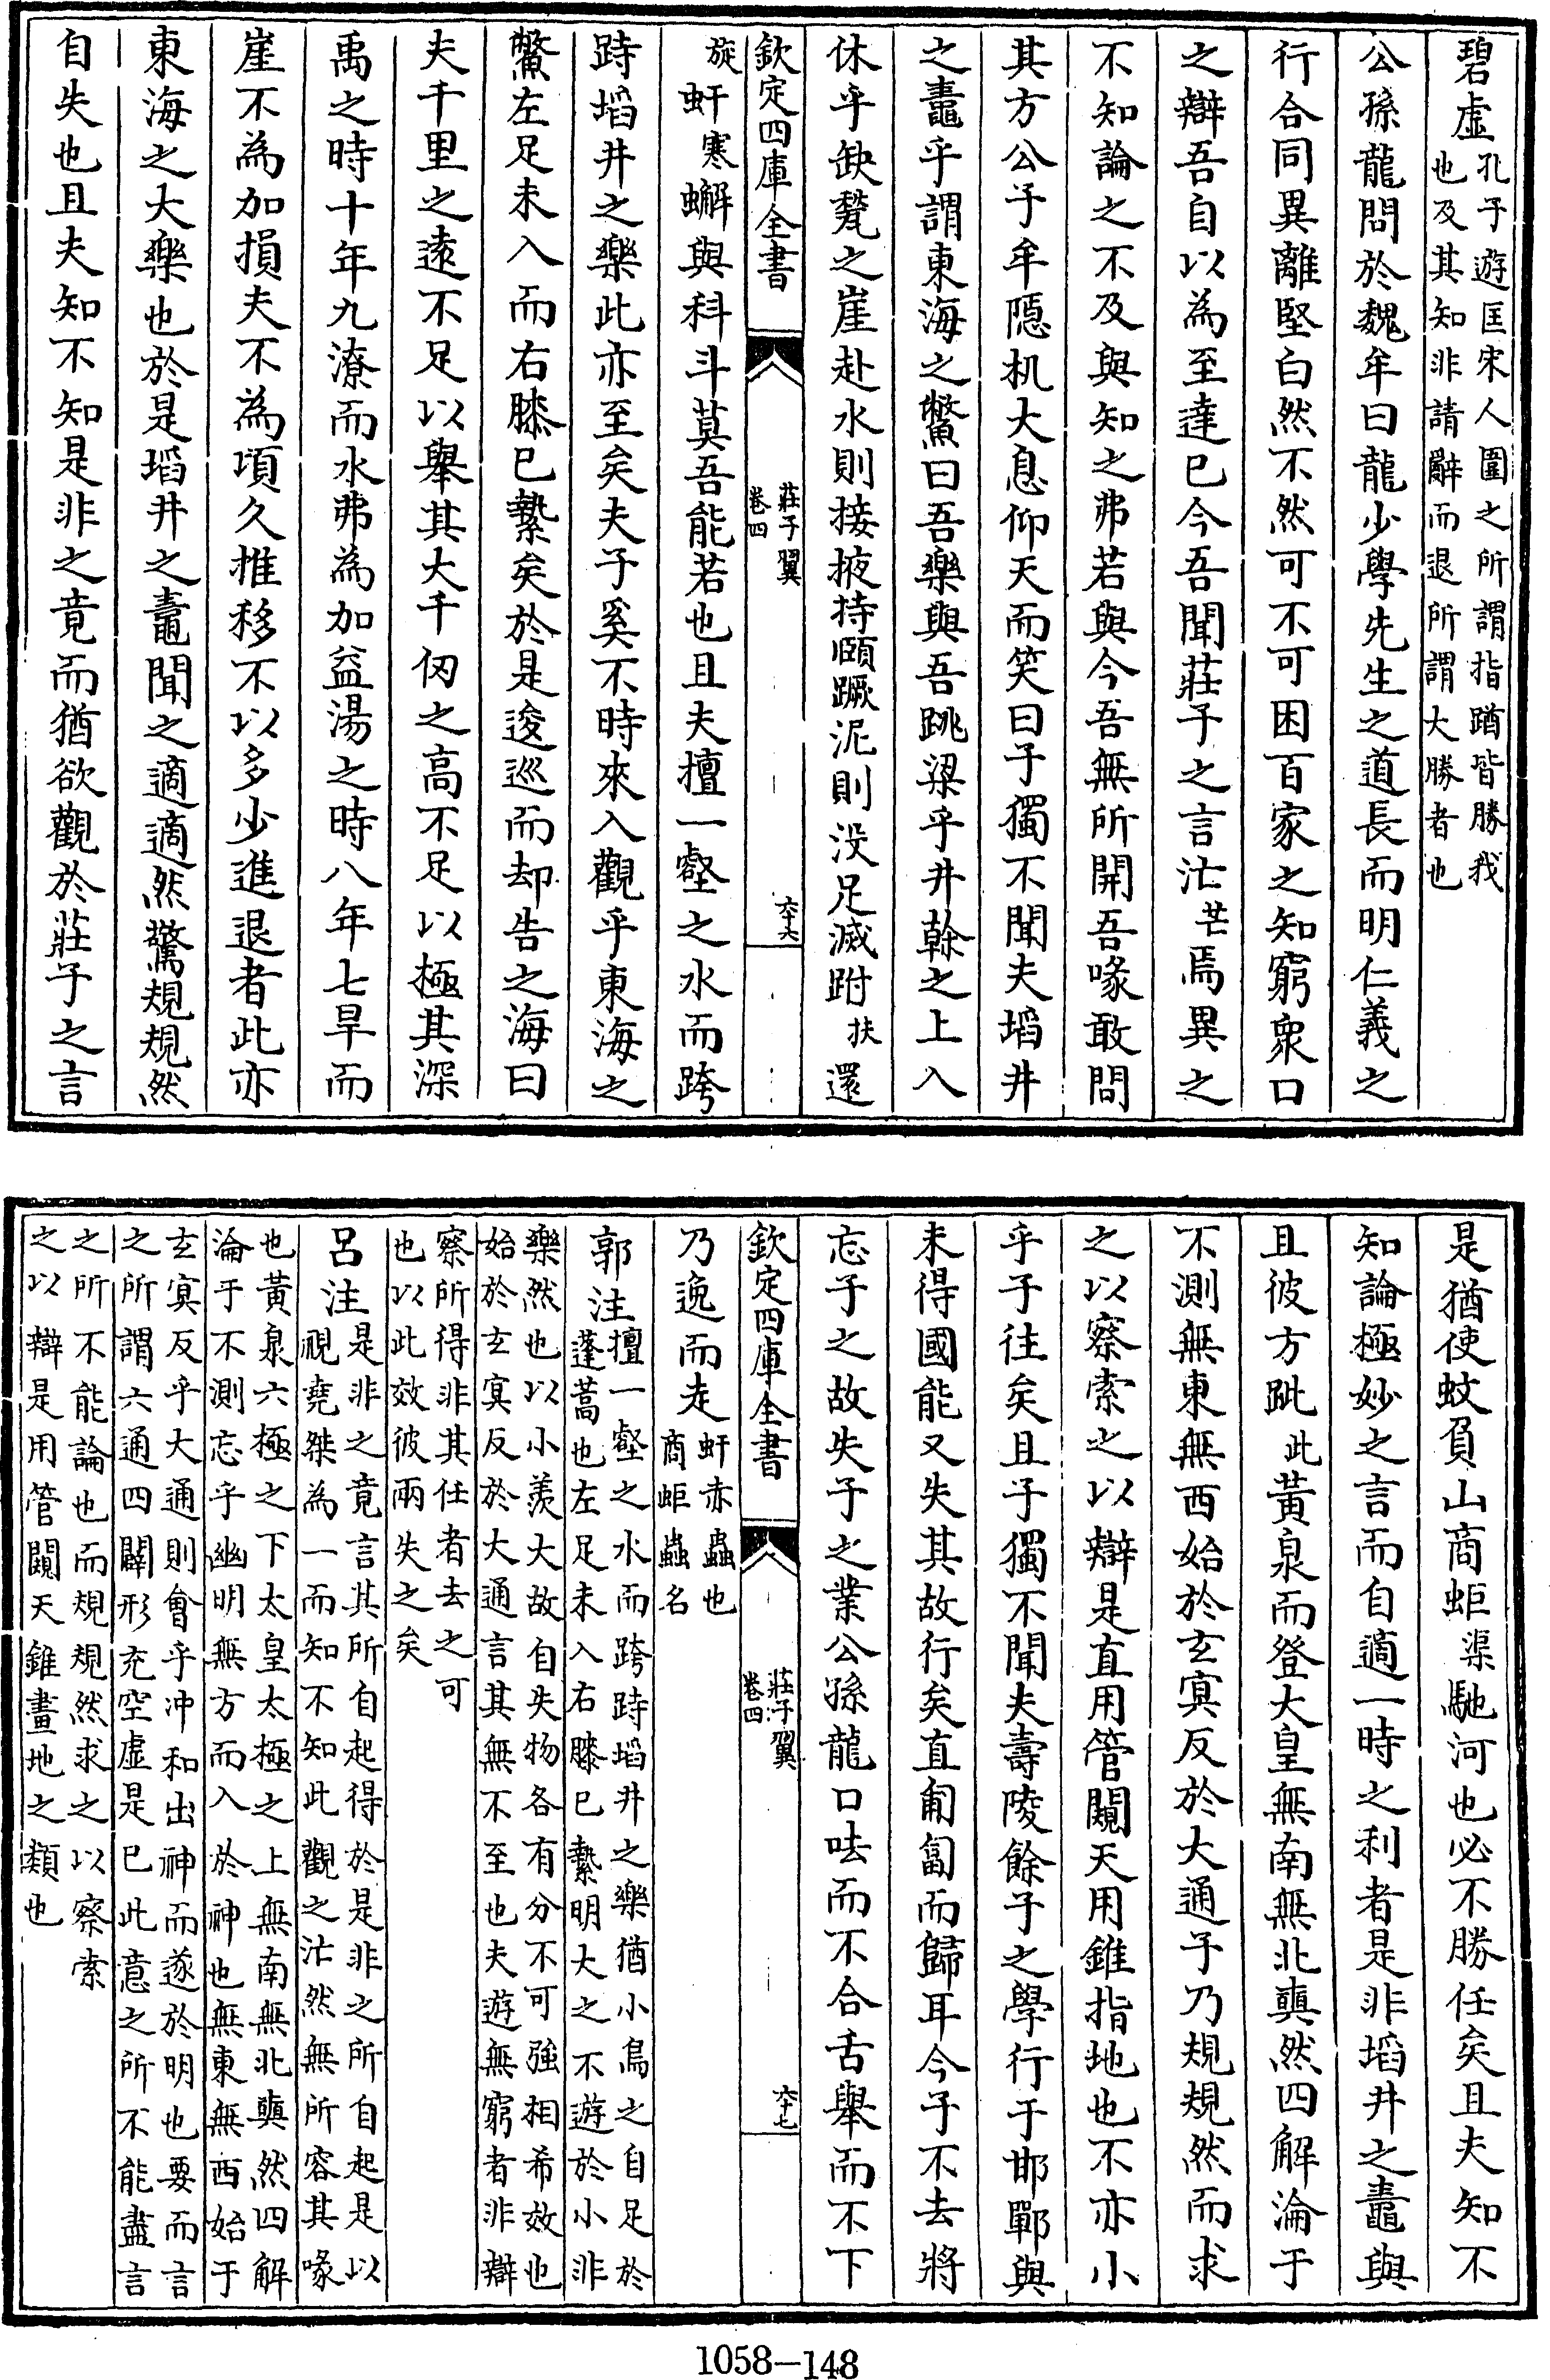 碧虚孔子遊匡宋人圍之所謂指蹈皆勝我
也及其知非請辭而退所謂大勝者也
公孫龍問於魏牟曰龍少學先生之道長而明仁義之
行合同異離堅白然不然可不可困百家之知窮衆口
之辯吾自以為至達已今吾聞莊子之言汒芒焉異之
不知論之不及與知之弗若與今吾無所開吾喙敢問
其方公子牟隱机大息仰天而笑曰子獨不聞夫埳井
之鼃乎謂東海之鱉曰吾樂與吾跳梁乎井幹之上入
休乎缺甃之崖赴水則接掖持頤蹶泥則没足滅跗扶還
欽定四庫全書
莊子翼
卷四
六十六
旋虷寒蠏與科斗莫吾能若也且夫擅一壑之水而跨
跱埳井之樂此亦至矣夫子奚不時來入觀乎東海之
鱉左足未入而右膝已縶矣於是逡巡而却告之海曰
夫千里之遠不足以舉其大千仞之高不足以極其深
禹之時十年九潦而水弗為加益湯之時八年七旱而
崖不為加損夫不為頃久推移不以多少進退者此亦
東海之大樂也於是埳井之鼃聞之適適然驚規規然
自失也且夫知不知是非之竟而猶欲觀於莊子之言
是猶使蚊負山商蚷渠馳河也必不勝任矣且夫知不
知論極妙之言而自適一時之利者是非埳井之鼃與
且彼方跐此黃泉而登大皇無南無北奭然四解淪于
不測無東無西始於玄冥反於大通子乃規規然而求
之以察索之以辯是直用管闚天用錐指地也不亦小
乎子往矣且子獨不聞夫壽陵餘子之學行于邯鄲與
未得國能又失其故行矣直匍匐而歸耳今子不去將
忘子之故失子之業公孫龍口呿而不合舌舉而不下
欽定四庫全書
莊子翼
卷四
六十七
乃逸而走虷亦蟲也
商蚷蟲名
郭注擅一壑之水而跨跱埳井之樂猶小鳥之自足於
蓬蒿也左足未入右膝已縶明大之不遊於小非
樂然也以小羨大故自失物各有分不可強相希效也
始於玄冥反於大通言其無不至也夫遊無窮者非辯
察所得非其任者去之可
也以此效彼兩失之矣
呂注是非之竟言其所自起得於是非之所自起是以
視堯桀為一而知不知此觀之汒然無所容其喙
也黃泉六極之下太皇太極之上無南無北奭然四解
淪于不測忘乎幽明無方而入於神也無東無西始于
玄冥反乎大通則會乎冲和出神而遂於明也要而言
之所謂六通四闢形充空虛是已此意之所不能盡言
之所不能論也而規規然求之以察索
之以辯是用管闚天錐畫地之類也
1058-148